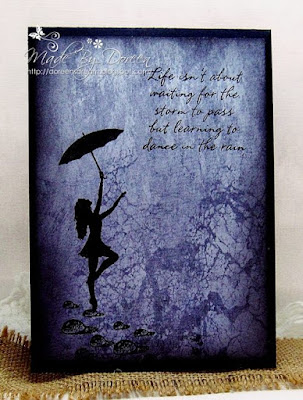 Made By Doreen
Life isn't about
waiting for the
storm to pass
but learning to
dance in the rain